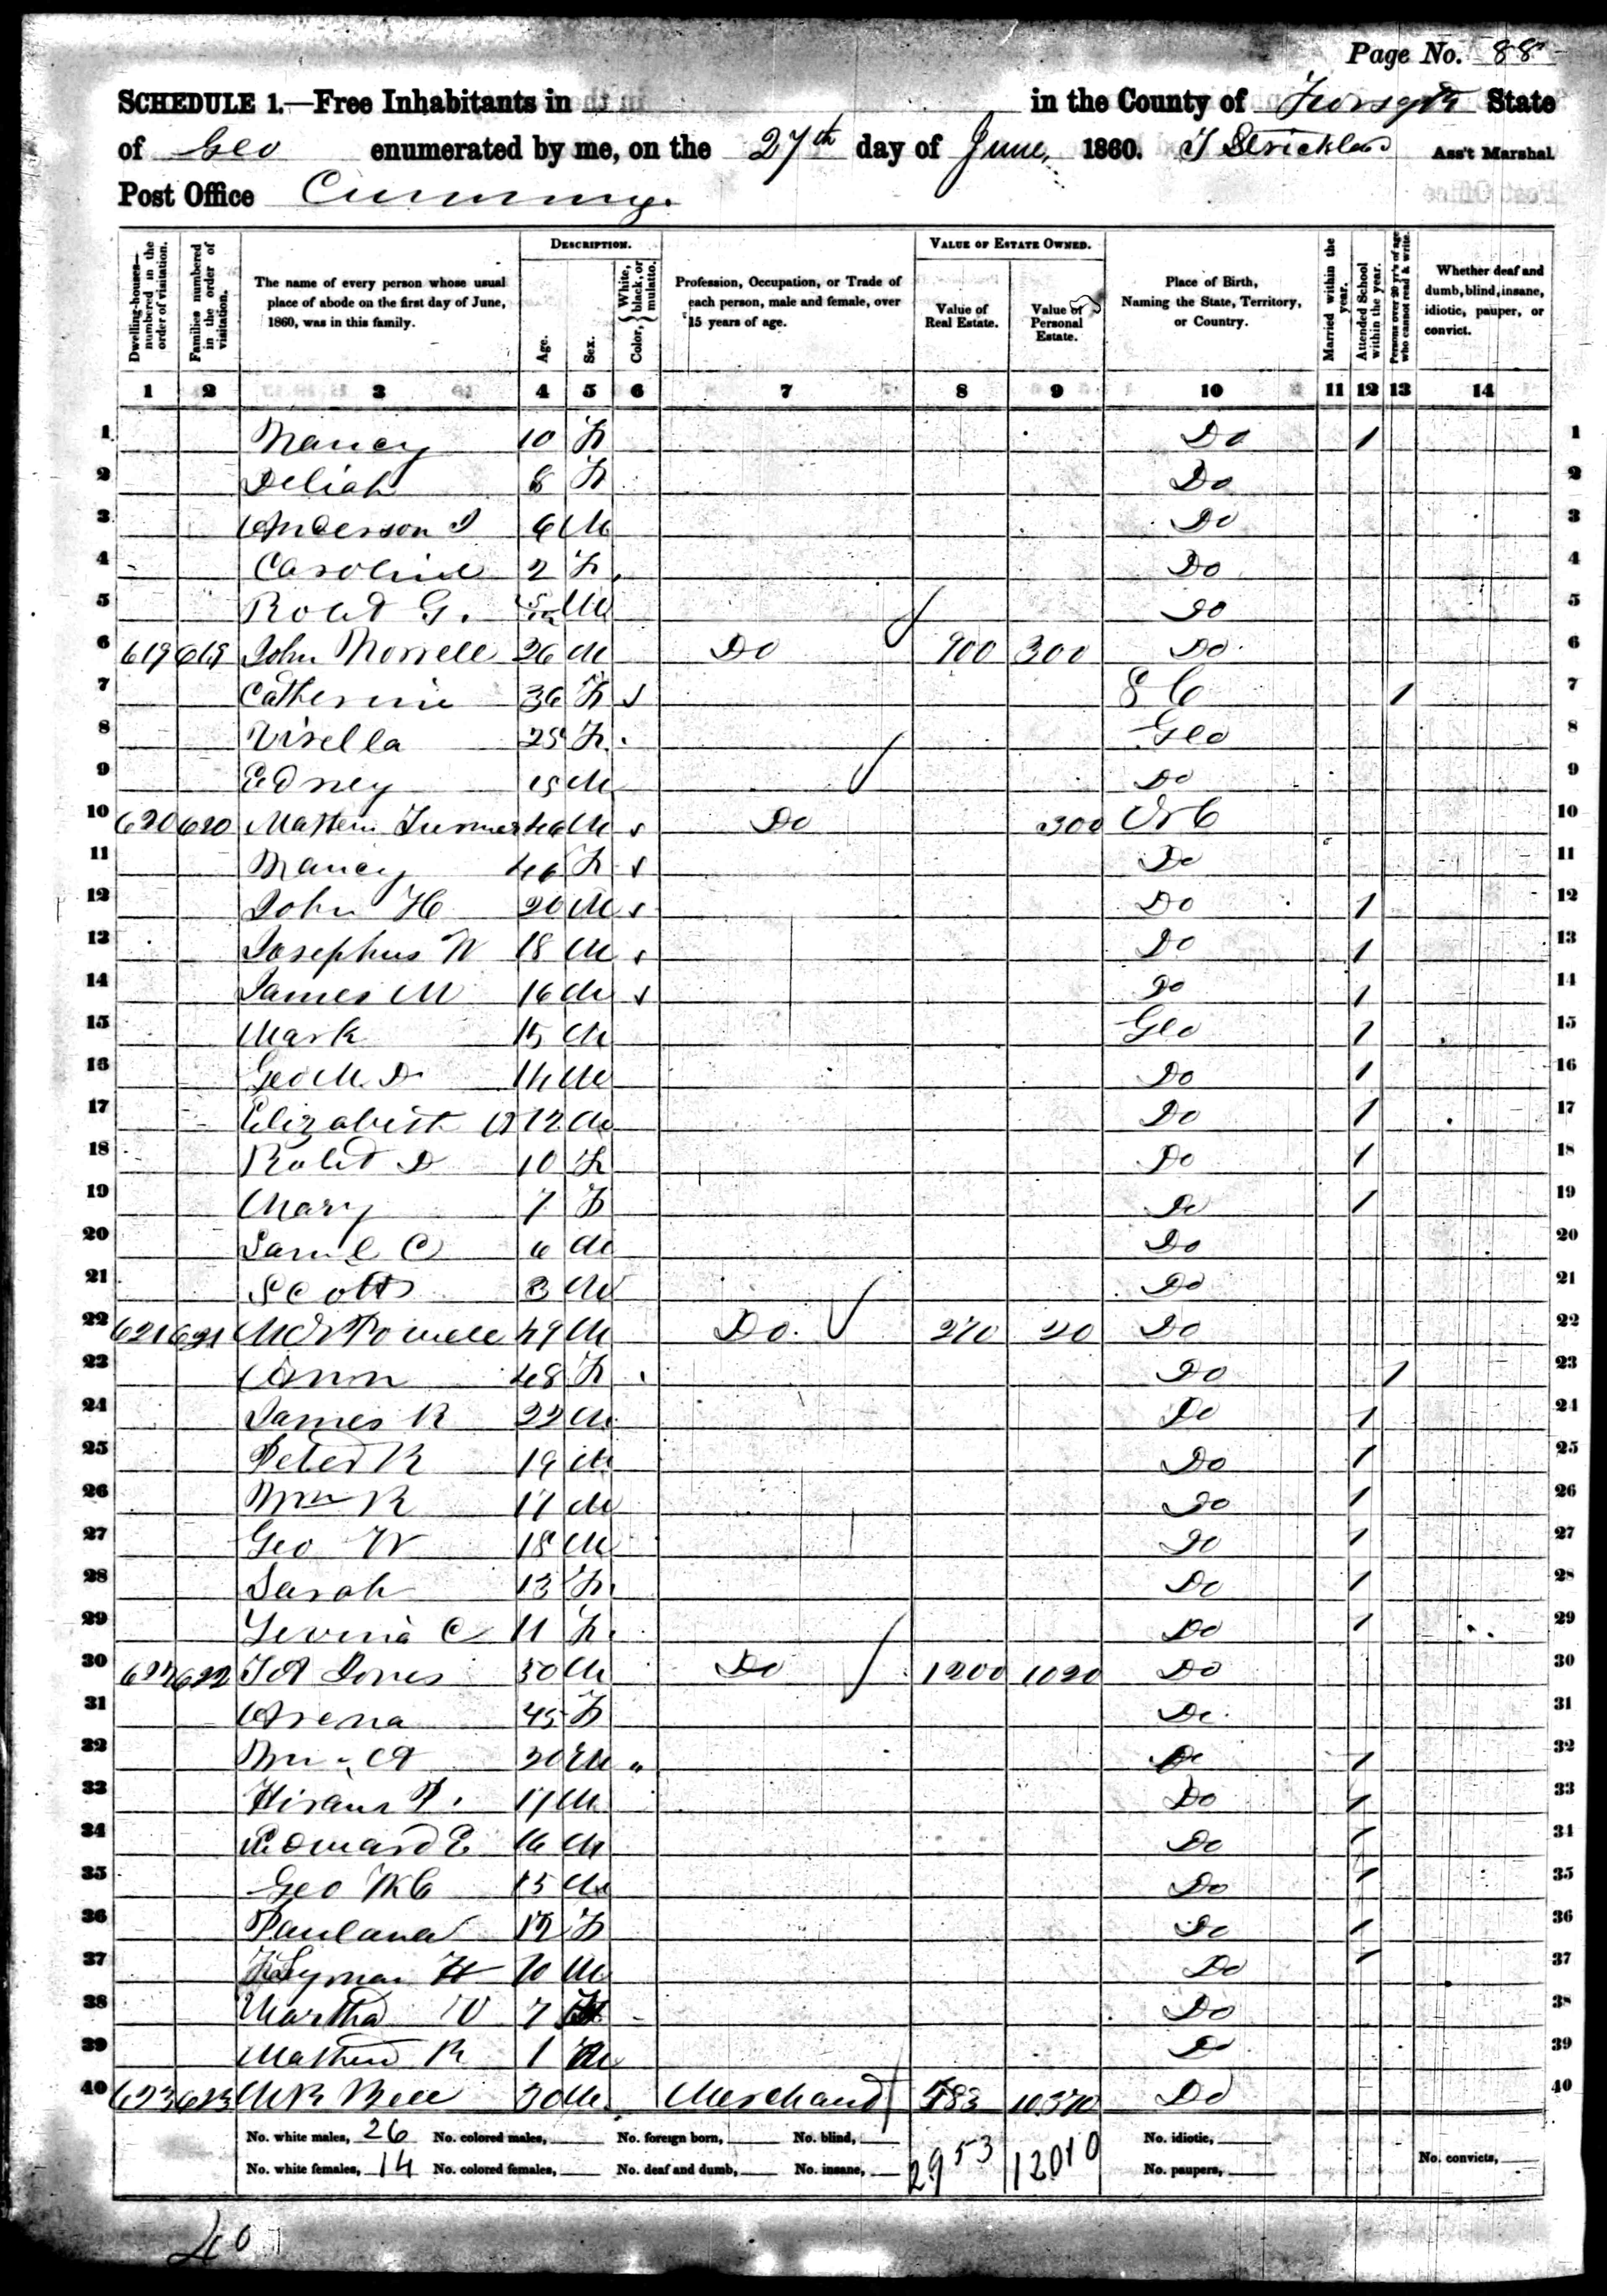 Page No. 88
SCHEDULE 1.—Free Inhabitants in in the County of Forsyth State
of Geo enumerated by me, on the 27th day of June, 1860. Strickland Ass't Marshal.
Post Office Cumming.
Dwelling-houses—numbered in the order of visitation.
Families numbered in the order of visitation.
The name of every person whose usual place of abode on the first day of June, 1860, was in this family.
DESCRIPTION.
Age.
Sex.
Color, White, black, or mulatto.
Profession, Occupation, or Trade of each person, male and female, over 15 years of age.
VALUE OF ESTATE OWNED.
Value of Real Estate.
Value of Personal Estate.
Place of Birth, Naming the State, Territory, or Country.
Married within the year.
Attended School within the year.
Persons over 20 yr's of age who cannot read & write.
Whether deaf and dumb, blind, insane, idiotic, pauper, or convict.
1 2 3 4 5 6 7 8 9 10 11 12 13 14
1 Nancy 10 F Do / 1
2 Deliah 8 F Do 2
3 Anderson J 6 M Do 3
4 Caroline 2 F Do 4
5 Robt G. M Do 5
6 619 619 John Morrell 26 M Do 900 300 Do 6
7 Catherine 36 F S C / 7
8 Visella 25 F Geo 8
9 Edney 15 M Do 9
10 620 620 Turner 46 M Do 300 N C 10
11 Nancy 46 F Do 11
12 John H 20 M Do / 12
13 Josephus W 18 M Do / 13
14 James M 16 M Do / 14
15 Mark 15 M Geo / 15
16 Geo M. D 14 M Do / 16
17 Elizabeth 12 M Do / 17
18 Robt D 10 F Do / 18
19 Mary 7 F Do / 19
20 Saml C 6 M Do 20
21 Scott 3 M Do 21
22 621 621 Powell 49 M Do. 270 20 Do 22
23 Ann 48 F Do / 23
24 James R 22 M Do / 24
25 Peter R 19 M Do / 25
26 Wm R 17 M Do / 26
27 Geo W 18 M Do / 27
28 Sarah 13 F Do / 28
29 Levina C 11 F Do / 29
30 622 622 Jones 50 M Do 1200 1020 Do 30
31 Arena 45 F Do 31
32 Wm A 20 M Do / 32
33 Hiram P. 17 M Do / 33
34 Edward E 16 M Do / 34
35 Geo 15 M Do / 35
36 F Do / 36
37 Lyman H 10 M Do / 37
38 Martha V 7 F Do 38
39 Mathew R 1 M Do 39
40 623 623 Bell 30 M Merchant 583 10,370 Do 40
No. white males, 26 No. colored males, No. foreign born, No. blind, 2953 12010 No. idiotic,
No. white females, 14 No. colored females, No. deaf and dumb, No. insane, No. paupers, No. convicts,
40